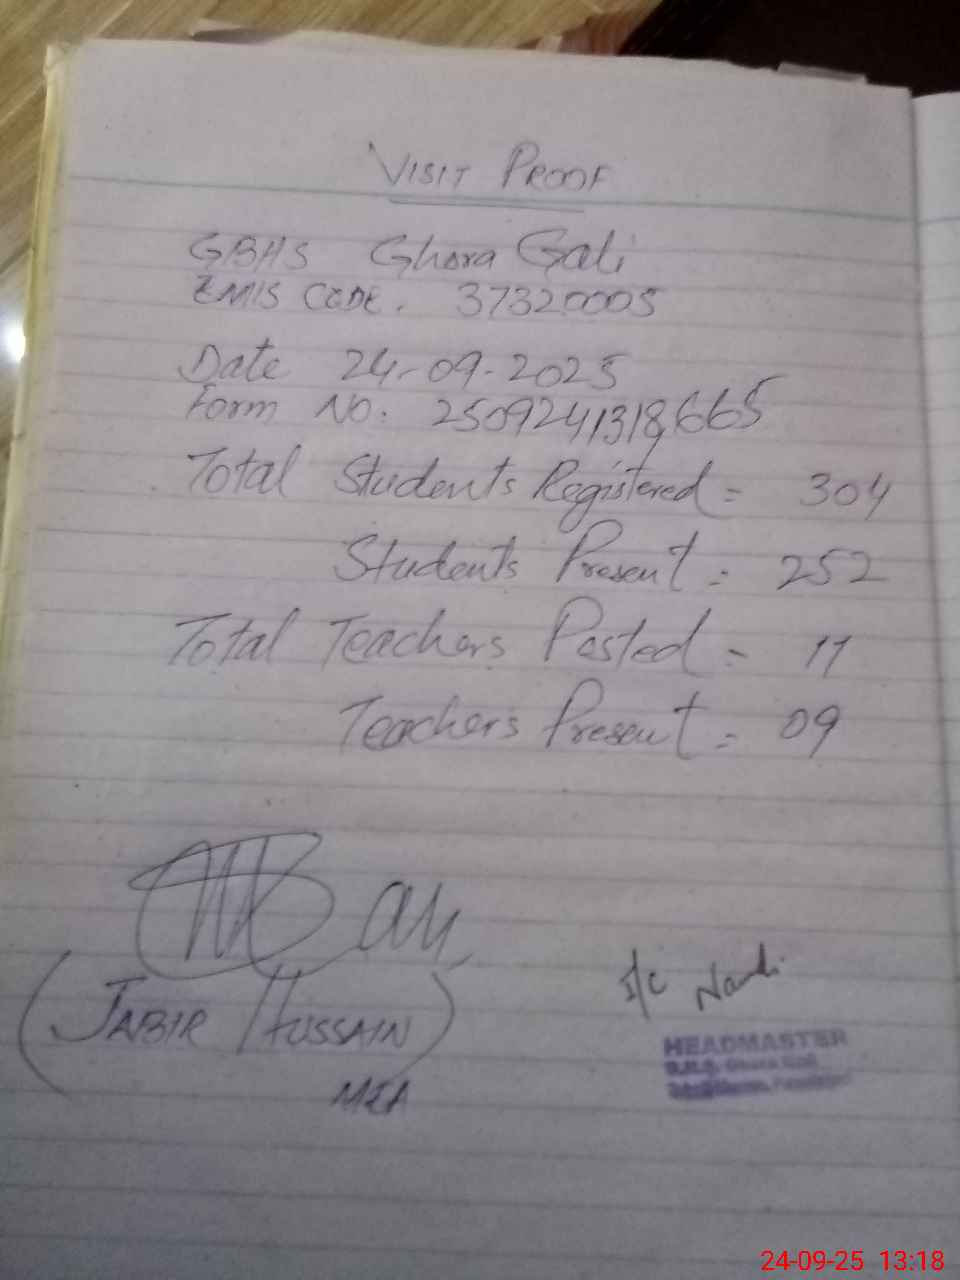 VISIT PROOF
GBHS Ghora Gali
EMIS CODE. 37320005
Date 24-09-2025
Form NO: 2509241318665
Total Students Registered = 304
Students Present = 252
Total Teachers Posted = 11
Teachers Present = 09
(JABIR HUSSAIN)
MEA
I/C
HEADMASTER
Ghora Gali
24-09-25 13:18